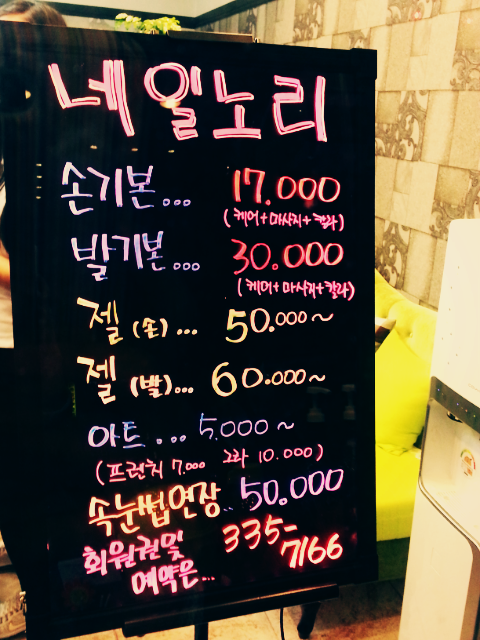 네일노리
손기본... 17.000
(케어+마사지+칼라)
발기본... 30.000
(케어+마사지+칼라)
젤 (손)... 50.000~
젤 (발)... 60.000~
아트.... 5,000~
(프런치 7.000 그라 10.000)
속눈썹연장.. 50.000
회원권및 335-
예약은... 7166